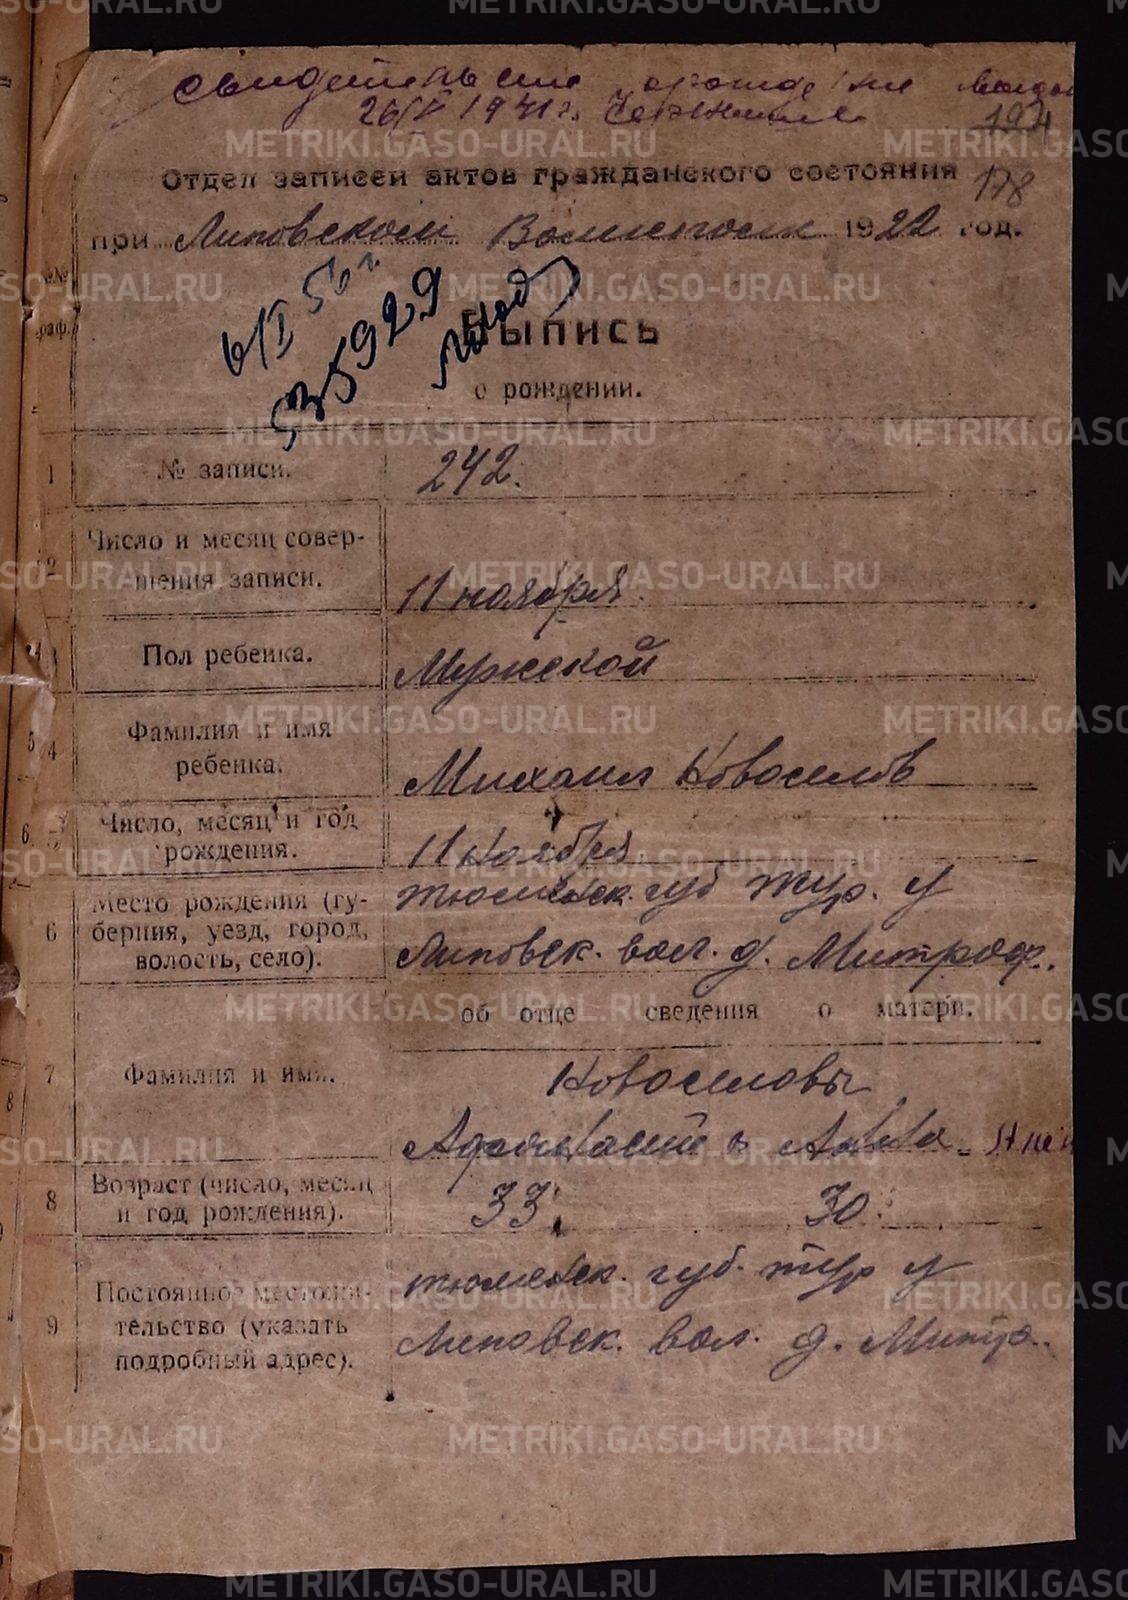 свидетельство о рождение выдан
26/V 1941 г.
194
Отдел записей актов гражданского состояния 178
при Липовском Волисполк 1922 год.
6/I 56 г
535929
Выпись
о рождении.
№№
граф.
1 № записи. 242.
2 Число и месяц совер-
шения записи. 11 ноября.
3 Пол ребенка. Мужской
4 Фамилия и имя
ребенка. Михаил Новоселов
5 Число, месяц и год
рождения. 11 Ноября.
Место рождения (гу- тюменск. губ тур. у
6 берния, уезд, город, Липовск. вол. д. Митроф.
волость, село).
об отце сведения о матери.
7 Фамилия и имя. Новоселовы
Афонасий и Анна
8 Возраст (число, месяц
и год рождения). 33. 30.
Постоянное местожи- тюменск. губ. тур у
9 тельство (указать Липовск. вол. д. Митро..
подробный адрес).
METRIKI.GASO-URAL.RU